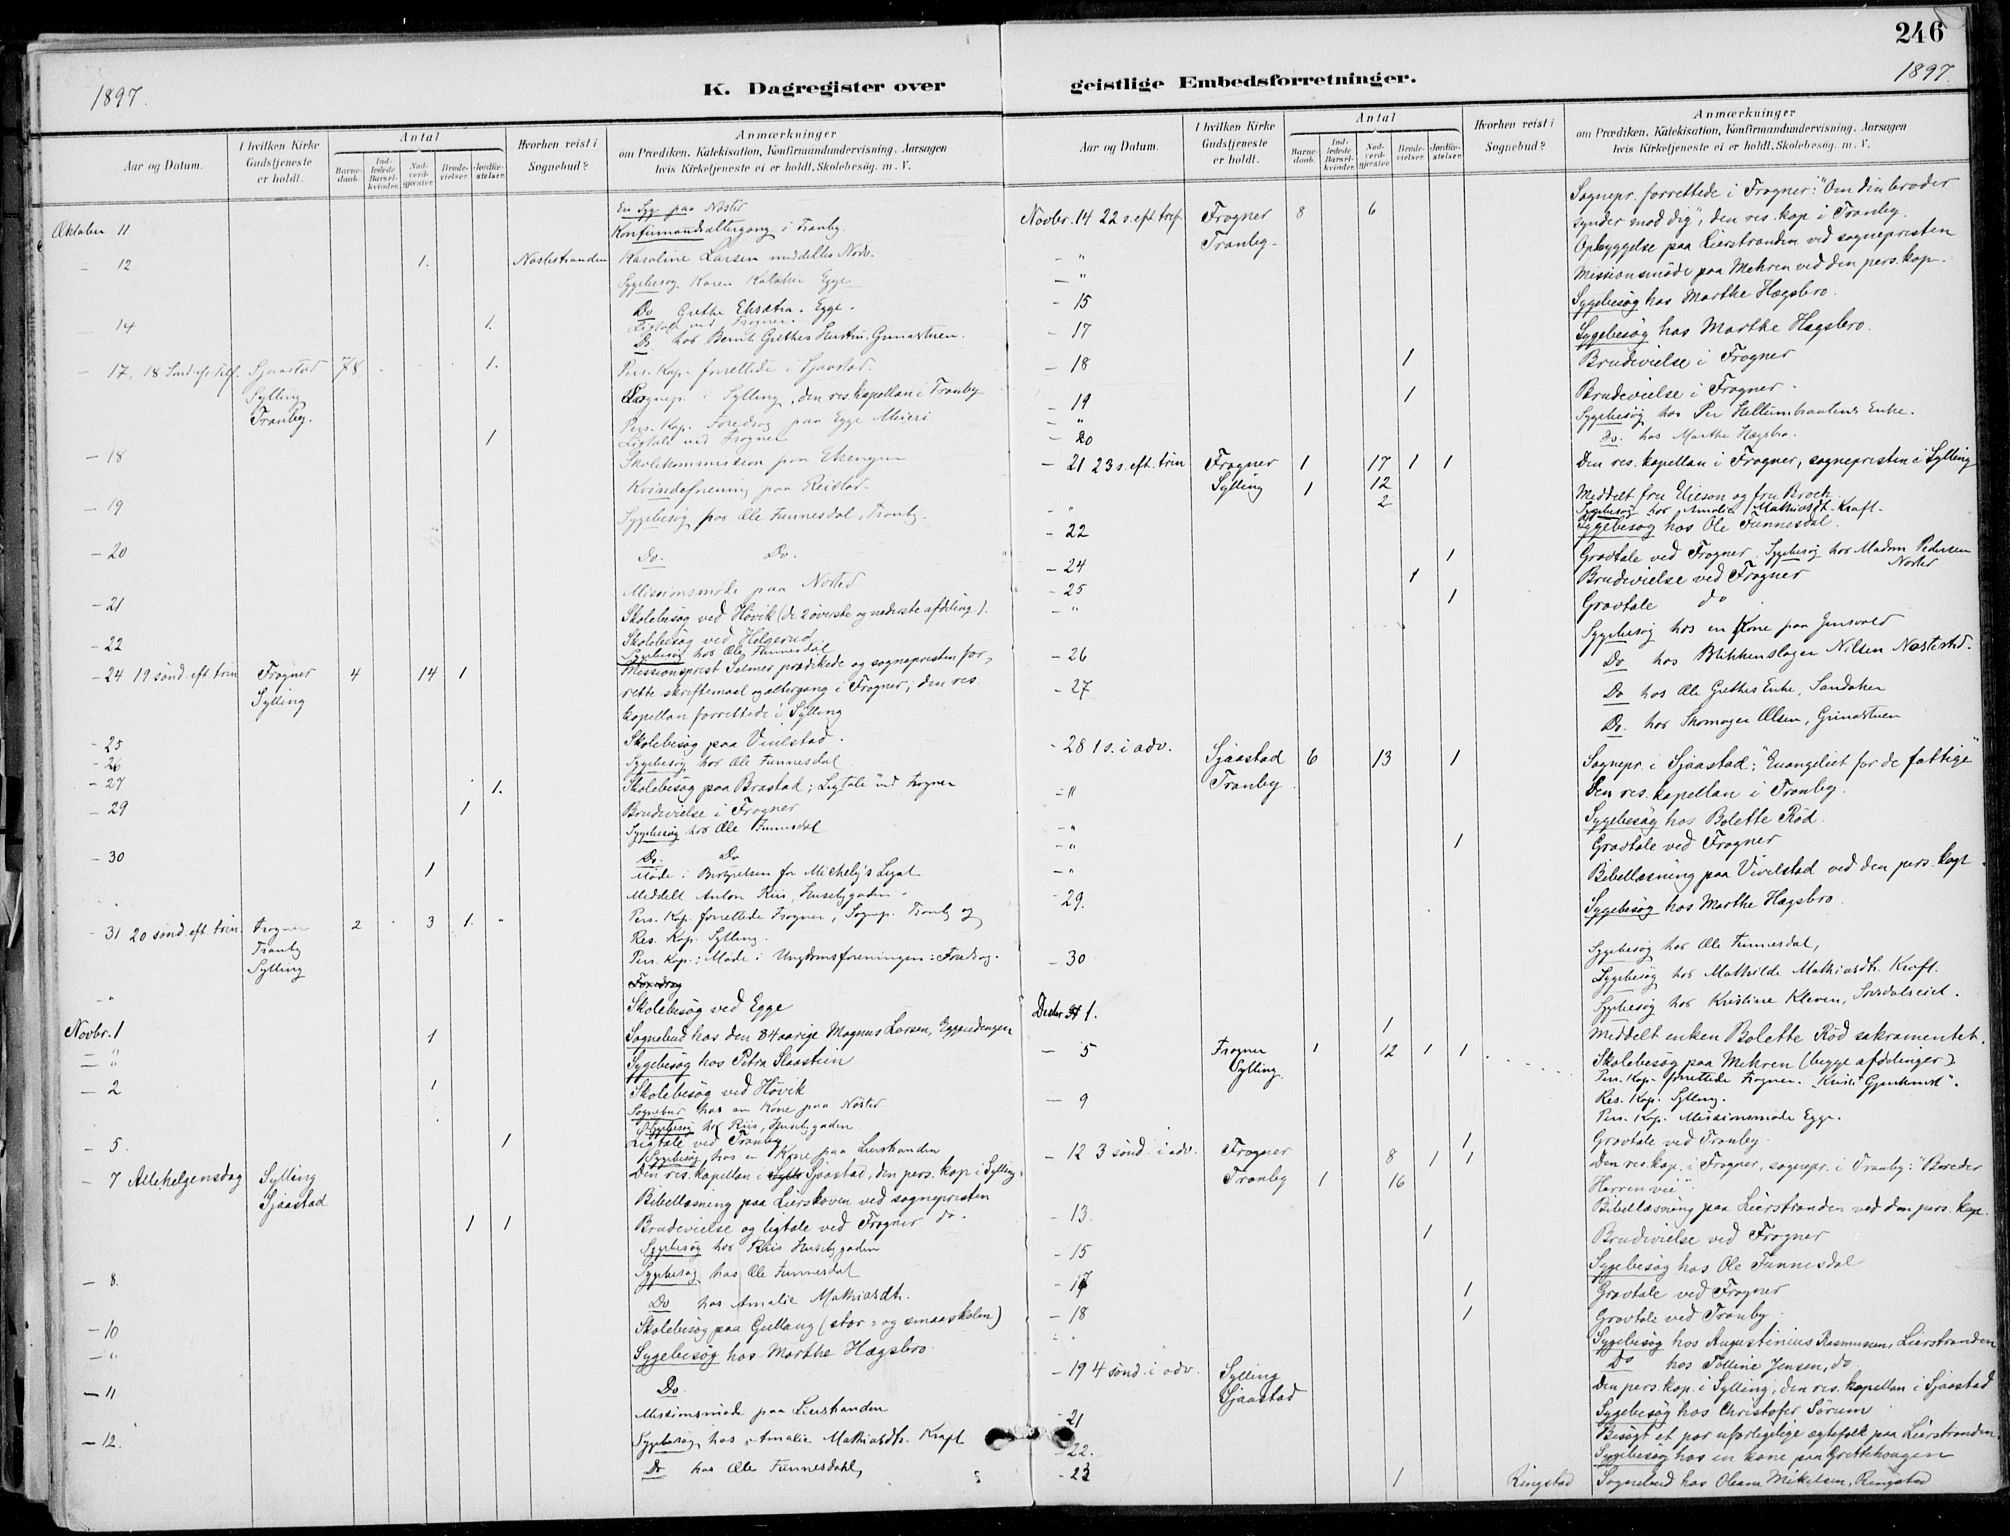 246
1897.
1897.
K. Dagregister over geistlige Embedsforretninger.
Aar og Datum.
I hvilken Kirke Gudstjeneste er holdt.
Antal
Barnedaab.
Indledede Barselkvinder.
Nadverdgjester.
Brudevielser.
Jordfæstelser.
Hvorhen reist i Sognebud?
Anmærkninger
om Prædiken, Katekisation, Konfirmandundervisning. Aarsagen
hvis Kirketjeneste ei er holdt. Skolebesøg. m. V.
En Syg paa Nøsted
Oktober 11 Konfirmandaltergang i Tranby.
- 12 1. Nøstestranden Karoline Larsen meddeltes Nadv.
Sygebesøg Karen Egge
Do Grethe Egge.
14 1. Ligtale ved Frogner.
Do hos Bernt Grethes Hustru, Gunnastuen.
- 17, 18 Sønd. ef. trf. Sjaastad 78 1. Pers. Kap. forrettede i Sjaastad.
Sylling Sognep. i Sylling, den res. kapellan i Tranby
Tranby. Pers. Kap. Foredrag paa Egge Meieri
1 Ligtale ved Frogner
- 18 Skolekommission paa Ekengen
Kvindeforening paa Reistad.
- 19 Sygebesøg hos Ole Funnesdal, Tranby.
- 20 Do. Do.
Missionsmøde paa Nøsted
- 21 Skolebesøg ved Høvik (de 2 øverste og nederste afdeling).
- 22 Skolebesøg ved Helgerud.
Sygebesøg hos Ole Funnesdal
- 24 19 sønd. eft. trin Frogner 4 14 1 Missionsprest Selmer prædikede og sognepresten for-
Sylling rette skriftemaal og altergang i Frogner; den res.
kapellan forrettede i Sylling
- 25 Skolebesøg paa Vivelstad.
- 26 Sygebesøg hos Ole Funnesdal
- 27 1. Skolebesøg paa Brastad; Ligtale ved Frogner
- 29 1 Brudevielse i Frogner
Sygebesøg hos Ole Funnesdal
- 30 Do. Do
Møde i Bestyrelsen for Michelys Legat
1 Meddelt Anton Riis, Husebygaden.
- 31 20 sønd. eft. trin. Frogner 2 3 1. Pers. Kap. forrettede Frogner, Sognep. Tranby og
Tranby Res. Kap. Sylling.
Sylling Pers. Kap.: Møde i Ungdomsforeningen: Foredrag.
Foredrag
- " Skolebesøg ved Egge
Novbr. 1 1 Sognebud hos den 84 aarige Magnus Larsen, Eggeenden
- " Sygebesøg hos Petra Slaastein
- 2 1 Skolebesøg ved Høvik
Sognebud hos en Kone paa Nøsted.
Sygebesøg hos Riis, Husebygaden
- 5. 1 Ligtale ved Tranby
Sygebesøg hos en Kone paa Lierstranden
- 7 Allehelgensdag Sylling Den res. kapellan i Sjaastad, den pers. kap i Sylling.
Sjaastad Bibellæsning paa Lierskoven ved sognepresten
1 1 Brudevielse og ligtale ved Frogner do.
Sygebesøg hos Riis Husebygaden
- 8. Sygebesøg hos Ole Funnesdal
Do hos Amalie Mathiasdt.
- 10 Skolebesøg paa Gullaug (stor- og smaaskolen)
- " Sygebesøg hos Marthe Hægsbro.
- 11 Do.
Missionsmøde paa Lierstranden
- 12. Sygebesøg hos Amalie Mathiasdt. Kraft
Do hos Ole Funnesdahl,
Aar og Datum.
I hvilken Kirke Gudstjeneste er holdt.
Antal
Barnedaab.
Indledede Barselkvinder.
Nadverdgjester.
Brudevielser.
Jordfæstelser.
Hvorhen reist i Sognebud?
Anmærkninger
om Prædiken, Katekisation, Konfirmandundervisning. Aarsagen
hvis Kirketjeneste ei er holdt. Skolebesøg. m. V.
Novbr. 14 22 s. eft. tref. Frogner 8 6 Sognepr. forrettede i Frogner: "Om din broder
Tranby. synder mod dig", den res. kap i Tranby.
- " Opbyggelse paa Lierstranden ved sognepresten
- " Missionsmøde paa Mehren ved den pers. kap.
- 15 Sygebesøg hos Marthe Hægsbro.
- 17 Sygebesøg hos Marthe Hægsbro.
- 18 1 Brudevielse i Frogner
- 19 1 Brudevielse i Frogner.
- " Sygebesøg hos Per Enke.
- 20 Do. hos Marthe Hægsbro.
- 21 23 s. eft. trin Frogner 1 17 1 1 Den res. kapellan i Frogner, sognepresten i Sylling
Sylling 1 12
- " 2 Meddelt fru Elieson og fru Broch
Sygebesøg hos Amalie Mathiasdt. Kraft.
- 22 Sygebesøg hos Ole Funnesdal.
- 24 1 Gravtale ved Frogner. Sygebesøg hos Madam Pedersen
Nøsted
- 25 1 Brudevielse ved Frogner
- " 1 Gravtale do
Sygebesøg hos en Kone paa
- 26 Do hos Blikkenslager Nilsen Nøstestrd.
- 27 Do hos Ole Grethes Enke, Sandaker
Do. hos Thomager Olsen, Grinastuen
- 28 1 s. i adv. Sjaastad 6 13 1 Sognepr. i Sjaastad: "Evangeliet for de fattige"
- " Tranby Den res. kapellan i Tranby.
- " Sygebesøg hos Bolette Rød.
- " 1 Gravtale ved Frogner
- " Bibellæsning paa Vivelstad ved den pers. kap.
- 29. Sygebesøg hos Marthe Hægsbro.
Sygebesøg hos Ole Funnesdal,
- 30 Sygebesøg hos Mathilde Mathiasdt. Kraft.
Sygebesøg hos Kristine Kleven,
Decbr 1. 1 Meddelt enken Bolette Rød sakramentet.
Skolebesøg paa Mehren (begge afdelinger)
- 5 Frogner 1 12 1 1 Pers. Kap. forrettede Frogner.
Sylling. Res. Kap. Sylling.
- 9 Pers. Kap. Missionsmøde Egge.
1 Gravtale ved Tranby.
- 12 3 sønd. i adv. Frogner 8 1 1 Den res. kap. i Frogner, sognepr. i Tranby: "Bereder
Tranby 1 16 Herren vei".
- 13. Bibellæsning paa Lierstranden ved den pers. kap.
1 Brudevielse ved Frogner
- 15 Sygebesøg hos Ole Funnesdal
- 17 1 Gravtale ved Frogner
- 18 1 Gravtale ved Tranby
- " Sygebesøg hos Augustinius Rasmussen, Lierstranden
Do hos Talline Jensen, do
- 19 4 sønd. i adv. Sylling Den pers. kap. i Sylling, den res. kapellan i Sjaastad
Sjaastad Sygebesøg hos Christofer Sørum
- 21 Besøgt et par uforligelige ægtefolk paa Lierstranden
- 22. Sygebesøg hos en kone paa Grettehaugen
- 23 1 Ringstad Sognebud hos Oleana Mikelsen, Ringstad